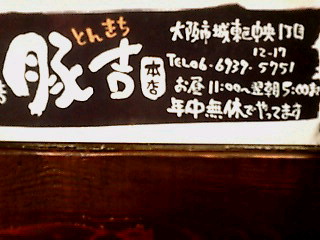 とんきち
豚吉
本店
大阪市城東区中央1丁目
12-17
TEL06-6939-5751
お昼11:00〜翌朝5:00まで
年中無休でやってます